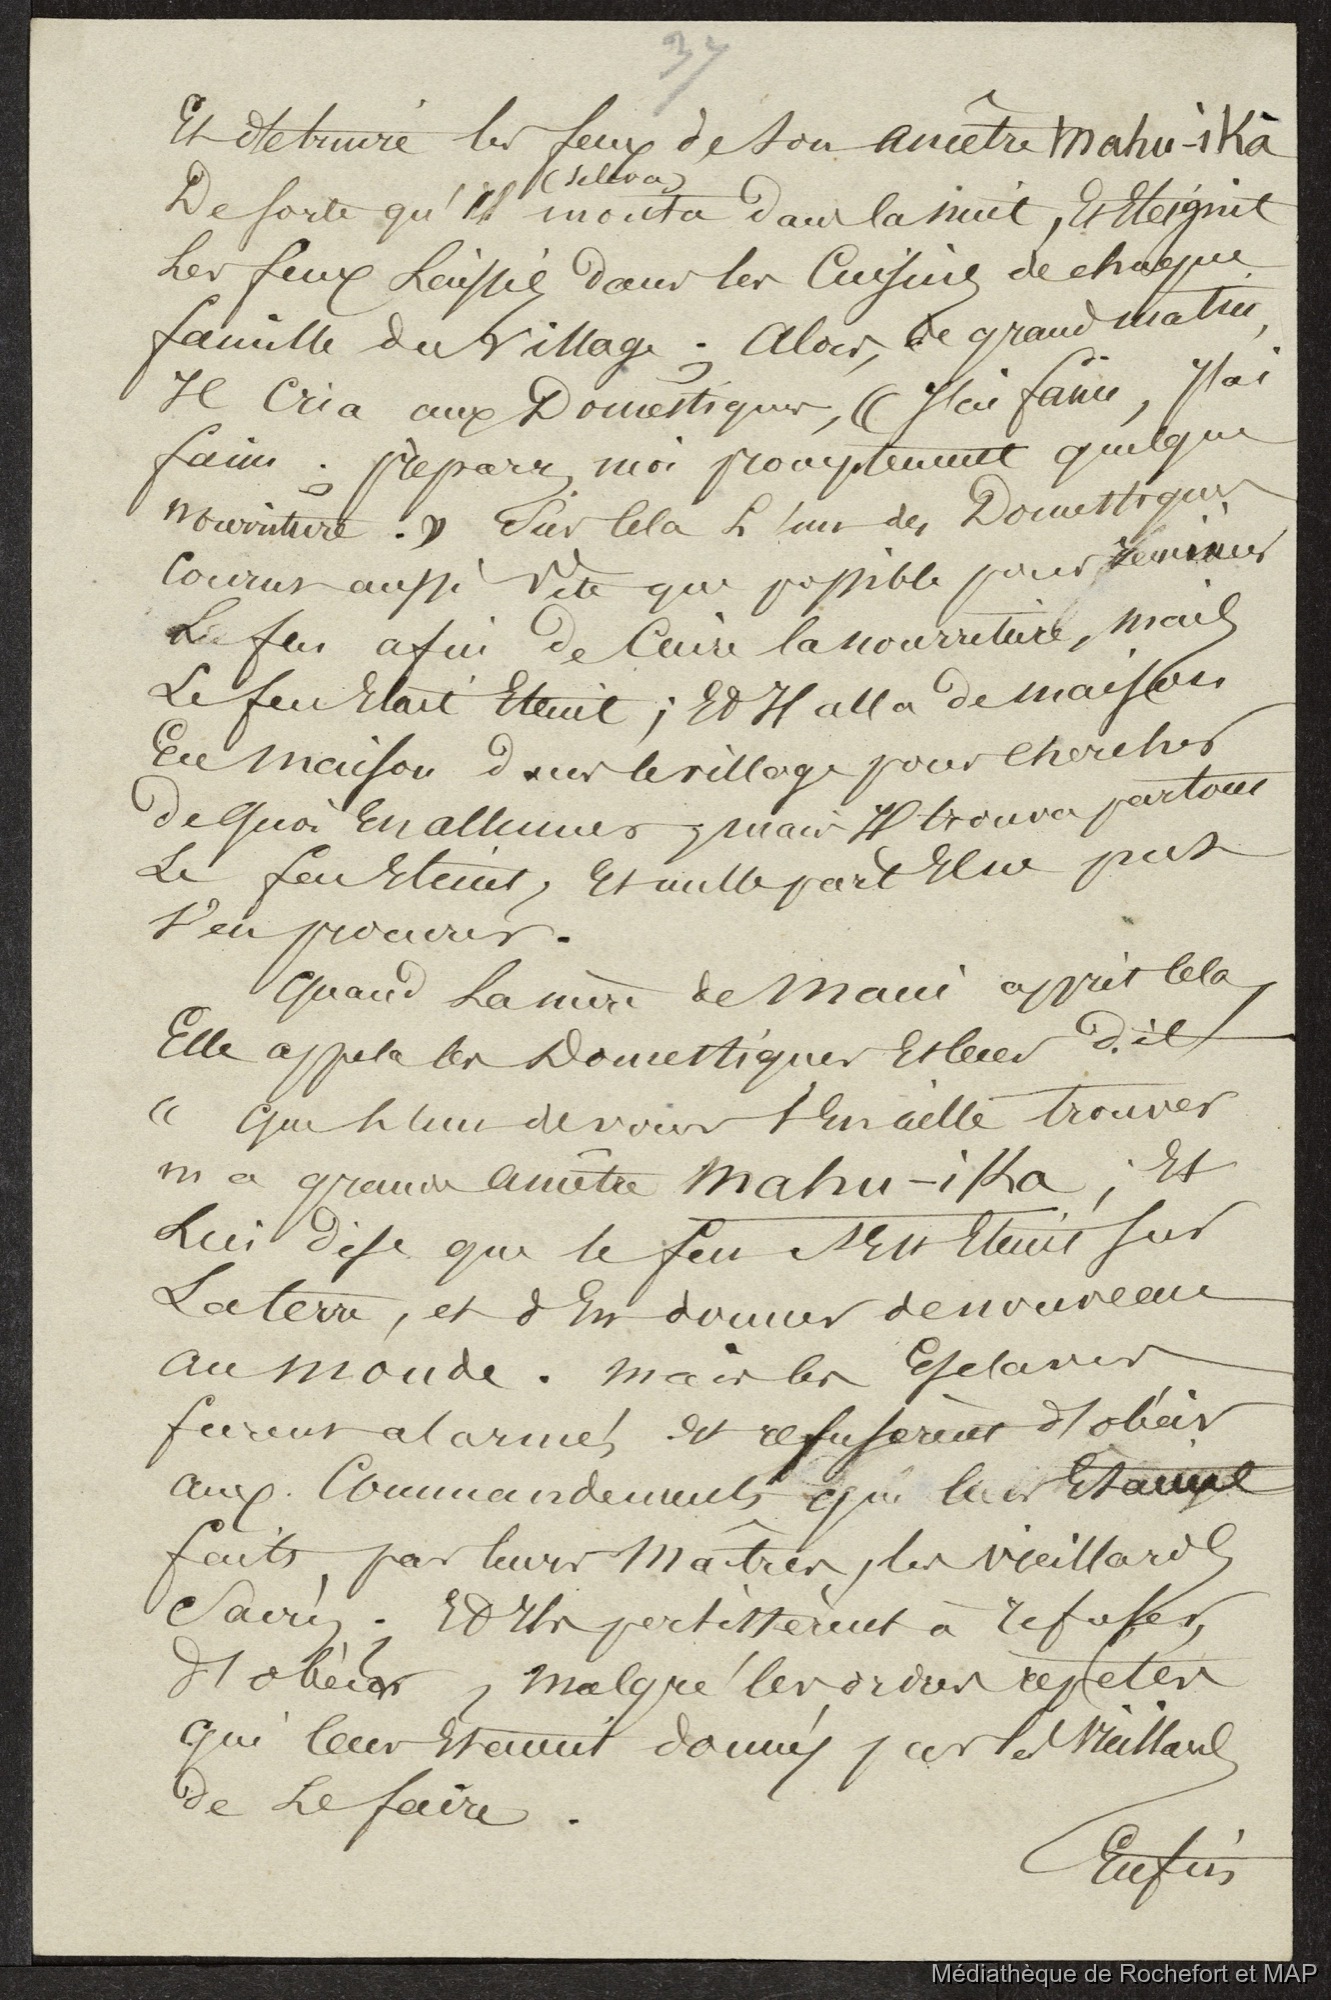 37
Et detruire les feux de son ancêtre Mahu-ika
(s'eleva)
De sorte qu'il monta dans la nuit, Et Eteignit
Les feux Laissés dans les Cuisines de chaque
famille du Village. Alors, de grand matin,
Il Cria aux Domestiques, (( J'ai faim, J'ai
faim. préparez moi promptement quelque
nourriture. )) Sur Cela L'un des Domestiques
Courut aussi Vite que possible pour
Le feu afin de Cuire la nourriture, mais
Le feu Etait Eteint; Et Il alla de maison
En maison dans le village pour chercher
De quoi En allumer, mais Il trouva partout
Le feu Eteint, Et nulle part Il ne put
s'en procurer.
Quand La mère de Maui apprit Cela,
Elle appela les Domestiques Et leur dit
(( Que L'un de vous s'En aille trouver
ma grande ancêtre Mahu-ika; Et
Lui dise que le feu s'Est Eteint sur
La terre, et d'En donner de nouveau
au Monde. Mais les Esclaves
furent alarmés Et refusèrent d'obéir
aux Commandements qui leur Etaient
faits par leurs Maîtres, les vieillards
Sacrés. Et Ils persistèrent à refuser
d'obéir, malgré les ordres repetés
qui leur Etaient donnés par les Vieillards
de Le faire.
Enfin
Médiathèque de Rochefort et MAP